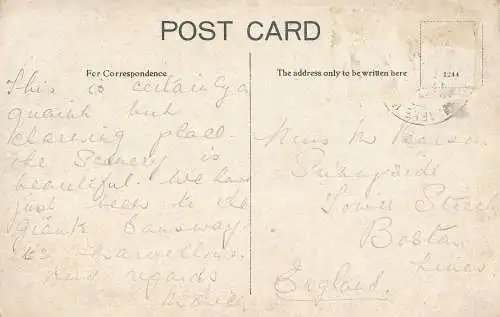 POST CARD
For Correspondence
This is certainly a
quaint but
charming place.
the Scenery is
beautiful. We have
just been to the
Giants Causway.
its Marvellous.
Kind regards
The address only to be written here
1244
Miss M Pearson
Sunnyside
Tower Street
Boston
Lincs.
England.